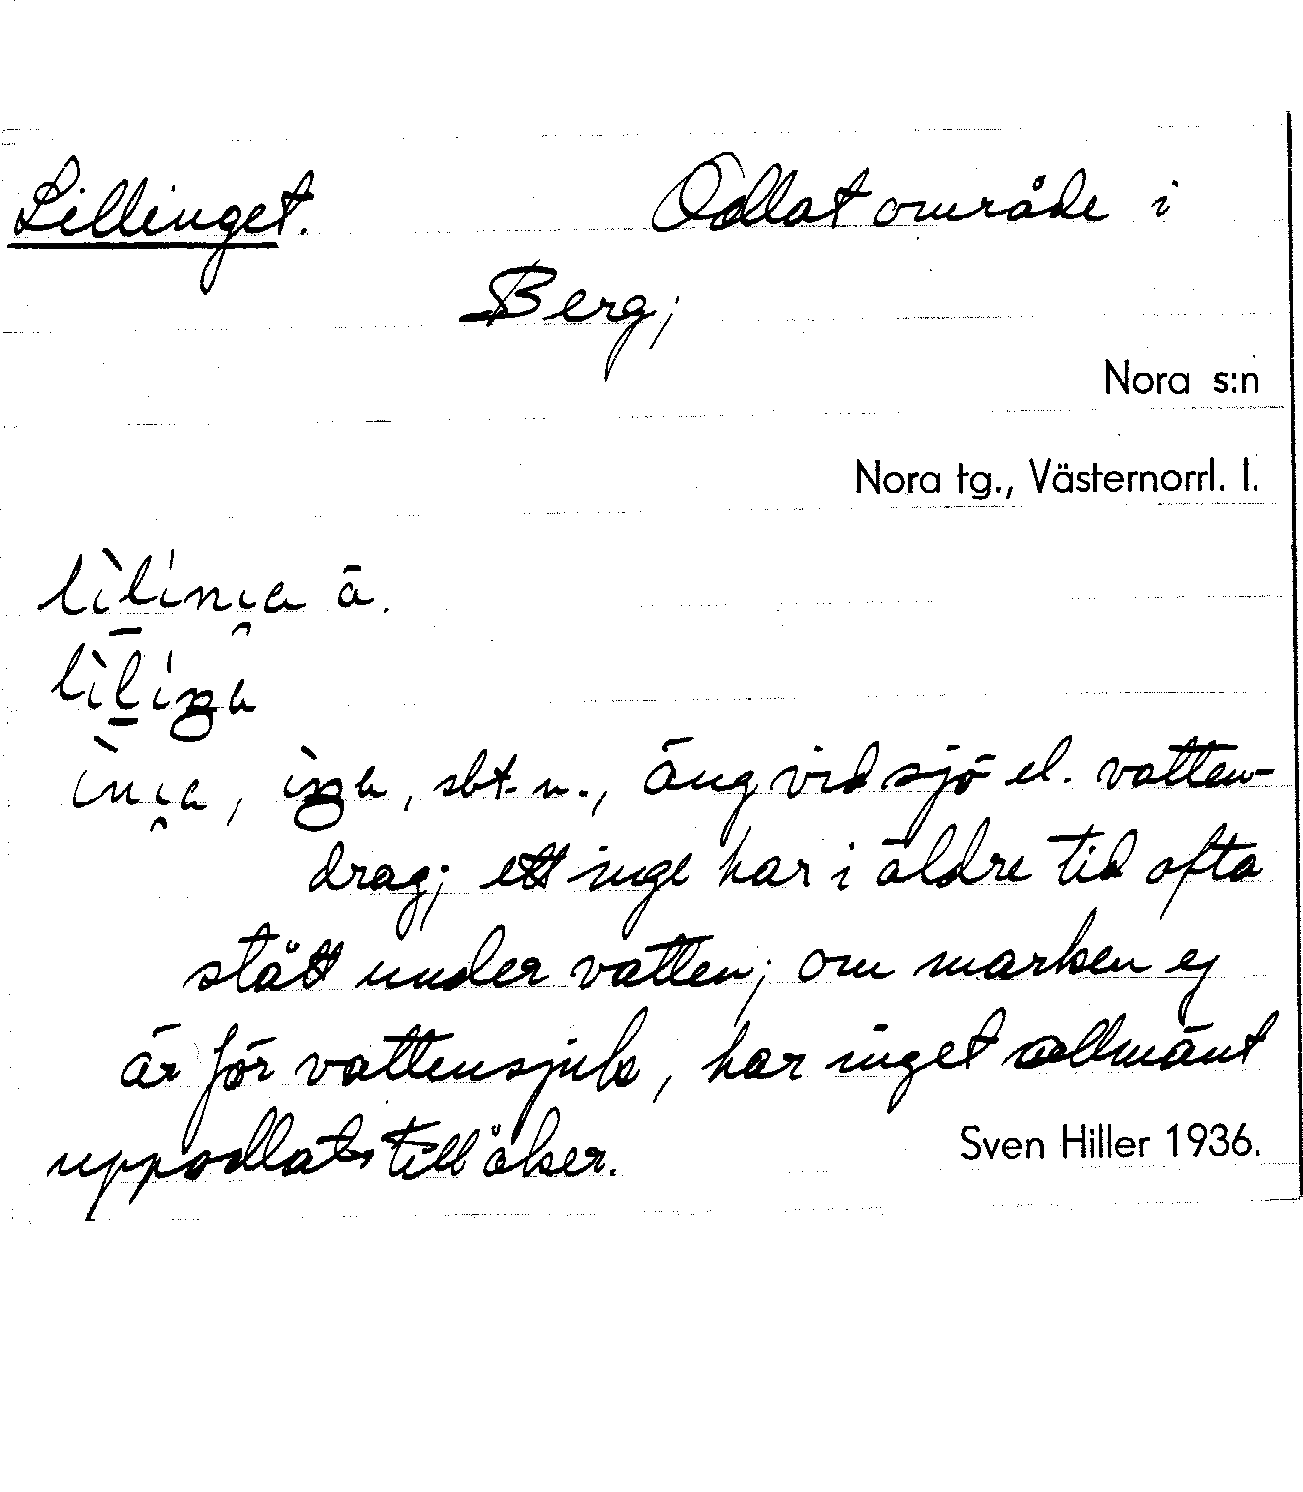 Lillinget. Odlat område i
Berg;
Nora s:n
Nora tg., Västernorrl. l.
ä.
sbt. n., äng vid sjö el. vatten-
drag; ett inge har i äldre tid ofta
stått under vatten; om marken ej
är för vattensjuk, har inget allmänt
uppodlats till åker.
Sven Hiller 1936.